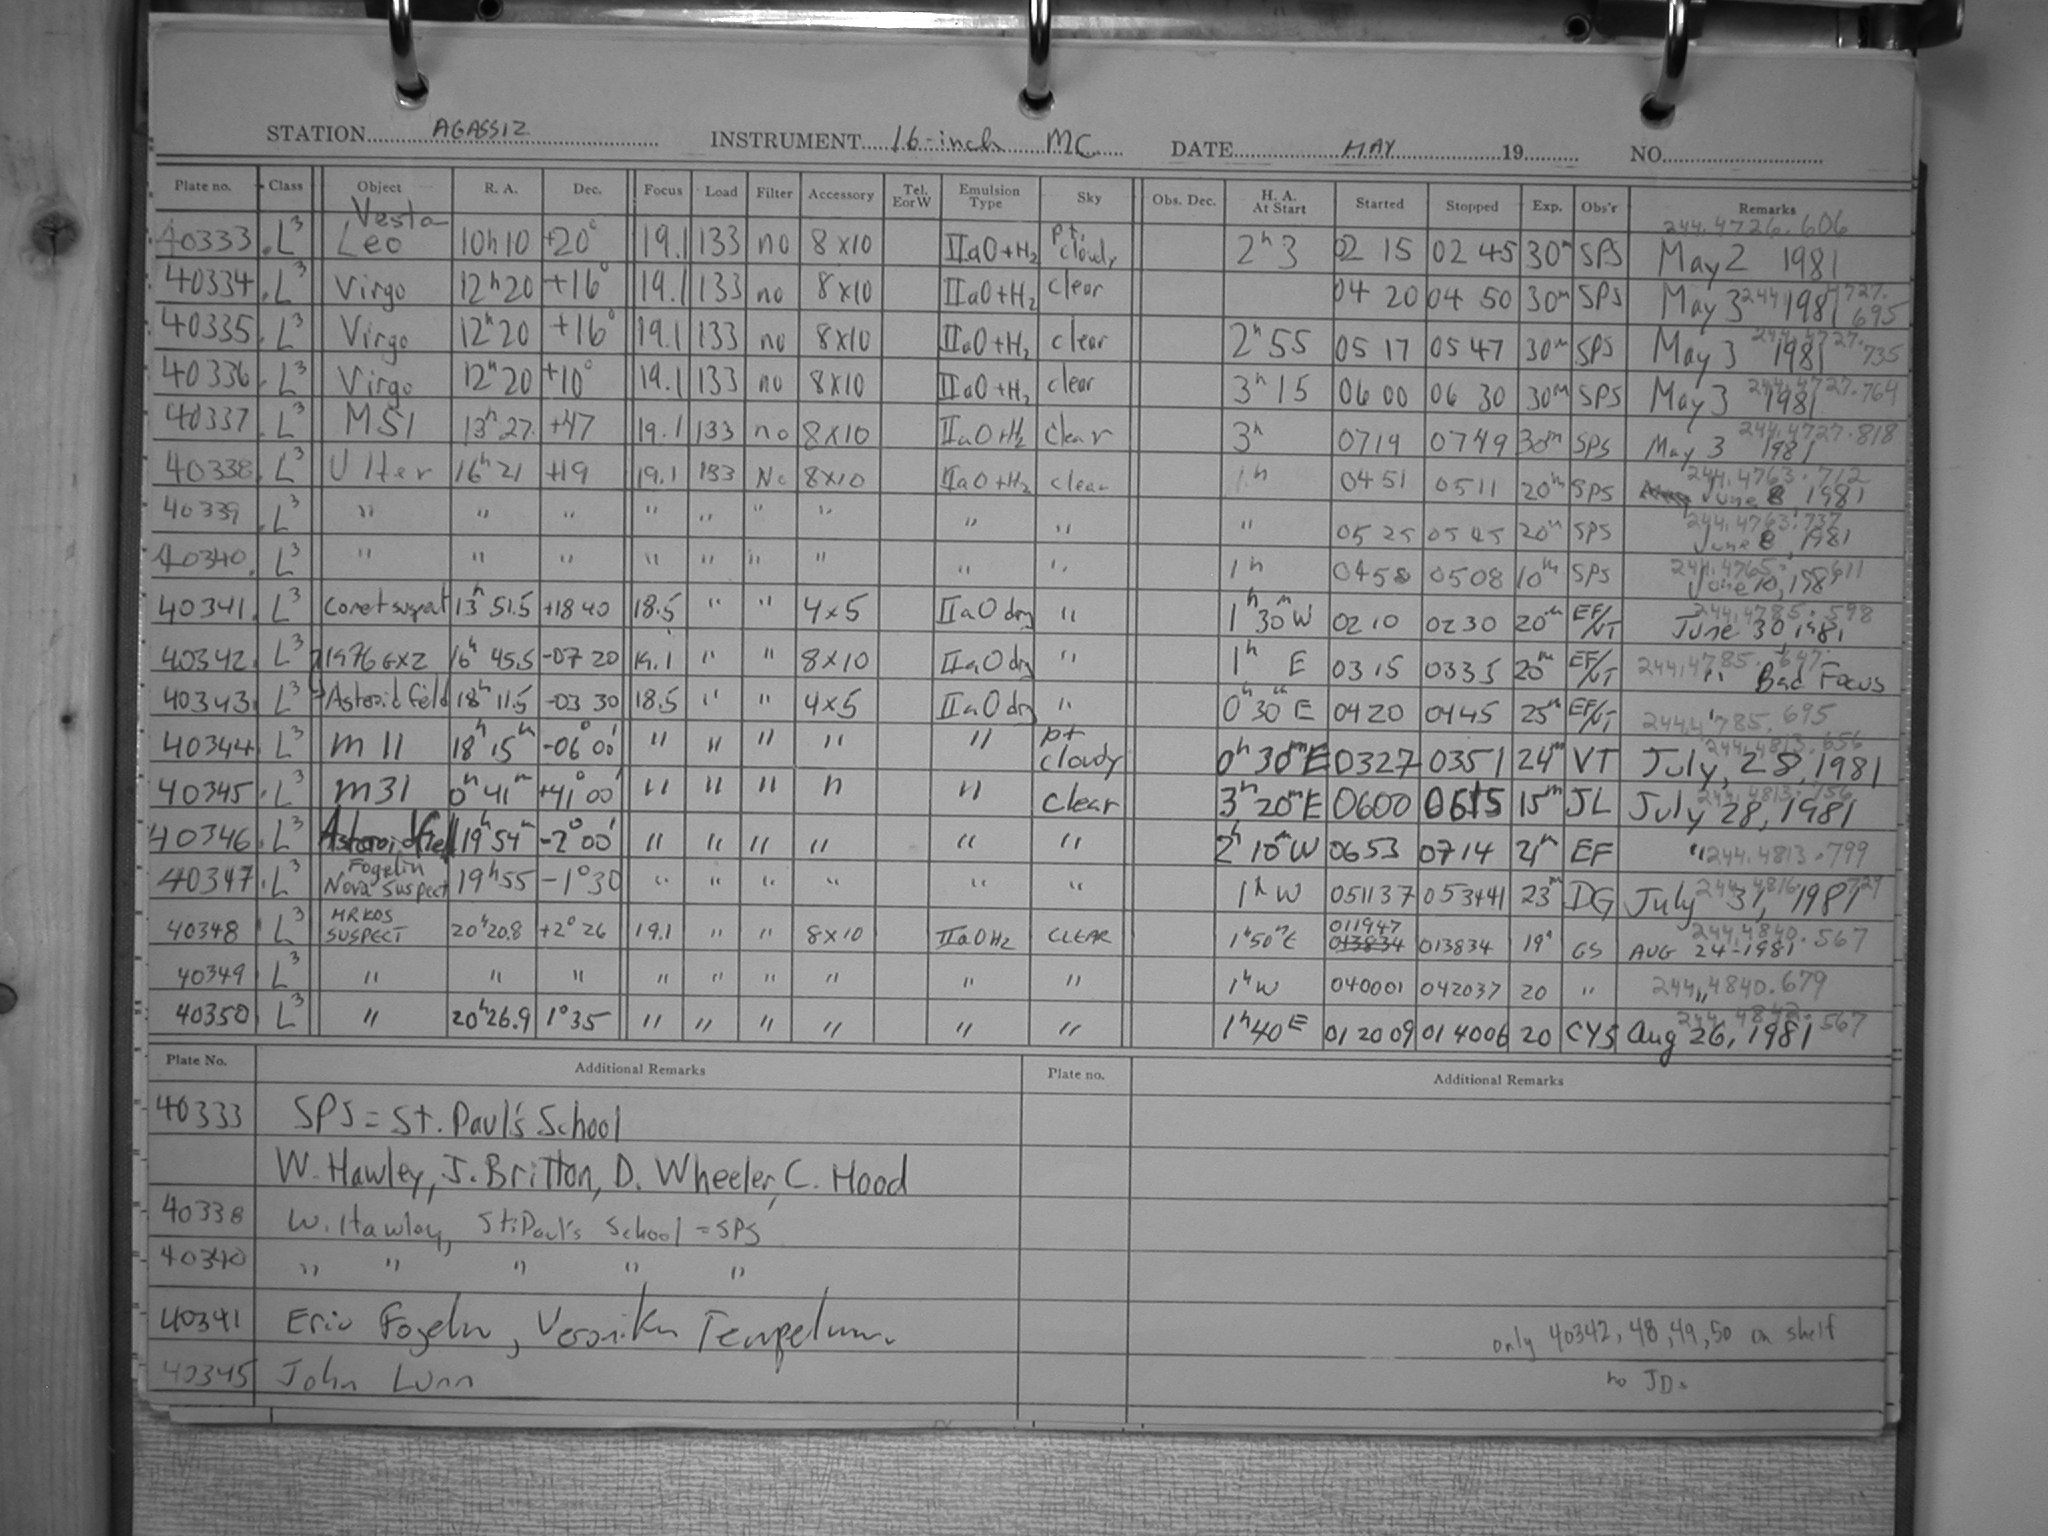 STATION AGASSIZ INSTRUMENT 16-inch MC DATE MAY 19 NO.
Plate no. Class Object R. A. Dec. Focus Load Filter Accessory Tel. E or W Emulsion Type Sky Obs. Dec. H. A. At Start Started Stopped Exp. Obs'r Remarks
40333 L3 Vesta Leo 10h10 +20° 19.1 133 no 8x10 IIaO+H2 pt. cloudy 2h 3 02 15 02 45 30m SPS 244.4726.606 May 2 1981
40334 L3 Virgo 12h20 +16° 19.1 133 no 8x10 IIaO+H2 clear 04 20 04 50 30m SPS May 3 1981 244.4727.695
40335 L3 Virgo 12h20 +16° 19.1 133 no 8x10 IIaO+H2 clear 2h55 05 17 05 47 30m SPS May 3 1981 244.4727.735
40336 L3 Virgo 12h20 +10° 19.1 133 no 8x10 IIaO+H2 clear 3h15 06 00 06 30 30m SPS May 3 1981 244.4727.764
40337 L3 M51 13h27 +47 19.1 133 no 8x10 IIaO+H2 clear 3h 0719 0749 30m SPS 244.4727.818 May 3 1981
40338 L3 U Her 16h21 +19 19.1 133 No 8x10 IIaO+H2 clear 1h 0451 0511 20m SPS 244.4763.712 June 8 1981
40339 L3 " " " " " " " " " " 0525 0545 20m SPS 244.4763.737 June 8, 1981
40340 L3 " " " " " " " " " 1h 0458 0508 10m SPS 244.4765.611 June 10, 1981
40341 L3 Comet suspect 13h 51.5 +18 40 18.5 " " 4x5 IIaO dry " 1h 30m W 0210 0230 20m EF/VT 244.4785.598 June 30, 1981
40342 L3 1976 GX2 16h 45.5 -07 20 19.1 " " 8x10 IIaO dry " 1h E 0315 0335 20m EF/VT 244.4785.647 " Bad Focus
40343 L3 Asteroid field 18h 11.5 -03 30 18.5 " " 4x5 IIaO dry " 0h 30m E 0420 0445 25m EF/VT " 244.4785.695
40344 L3 m 11 18h 15m -06° 00' " " " " " pt cloudy 0h 30m E 0327 0351 24m VT 244.4813.656 July, 28, 1981
40345 L3 m31 0h 41m +41° 00' " " " " " clear 3h 20m E 0600 0615 15m JL 244.4813.756 July 28, 1981
40346 L3 Asteroid field 19h 54m -2° 00' " " " " " " 2h 10m W 0653 0714 21m EF " 244.4813.799
40347 L3 Fogelin Nova suspect 19h55 -1°30 " " " " " " 1h W 051137 053441 23m DG 244.4816.729 July 31, 1981
40348 L3 MRKOS SUSPECT 20h20.8 +2° 26 19.1 " " 8x10 IIaOH2 CLEAR 1h50m E 011947 013834 013834 19m GS 244.4840.567 AUG 24-1981
40349 L3 " " " " " " " " " 1h W 040001 042037 20 " 244.4840.679 "
40350 L3 " 20h26.9 1°35 " " " " " " 1h40 E 012009 014006 20 CYS 244.4842.567 Aug 26, 1981
Plate No. Additional Remarks Plate no. Additional Remarks
40333 SPS = St. Paul's School
W. Hawley, J. Britton, D. Wheeler, C. Hood
40338 W. Hawley, St. Paul's School = SPS
40340 " " " " "
40341 Eric Fogelin, Veronika
only 40342, 48, 49, 50 on shelf
40345 John Lunn
no JDs